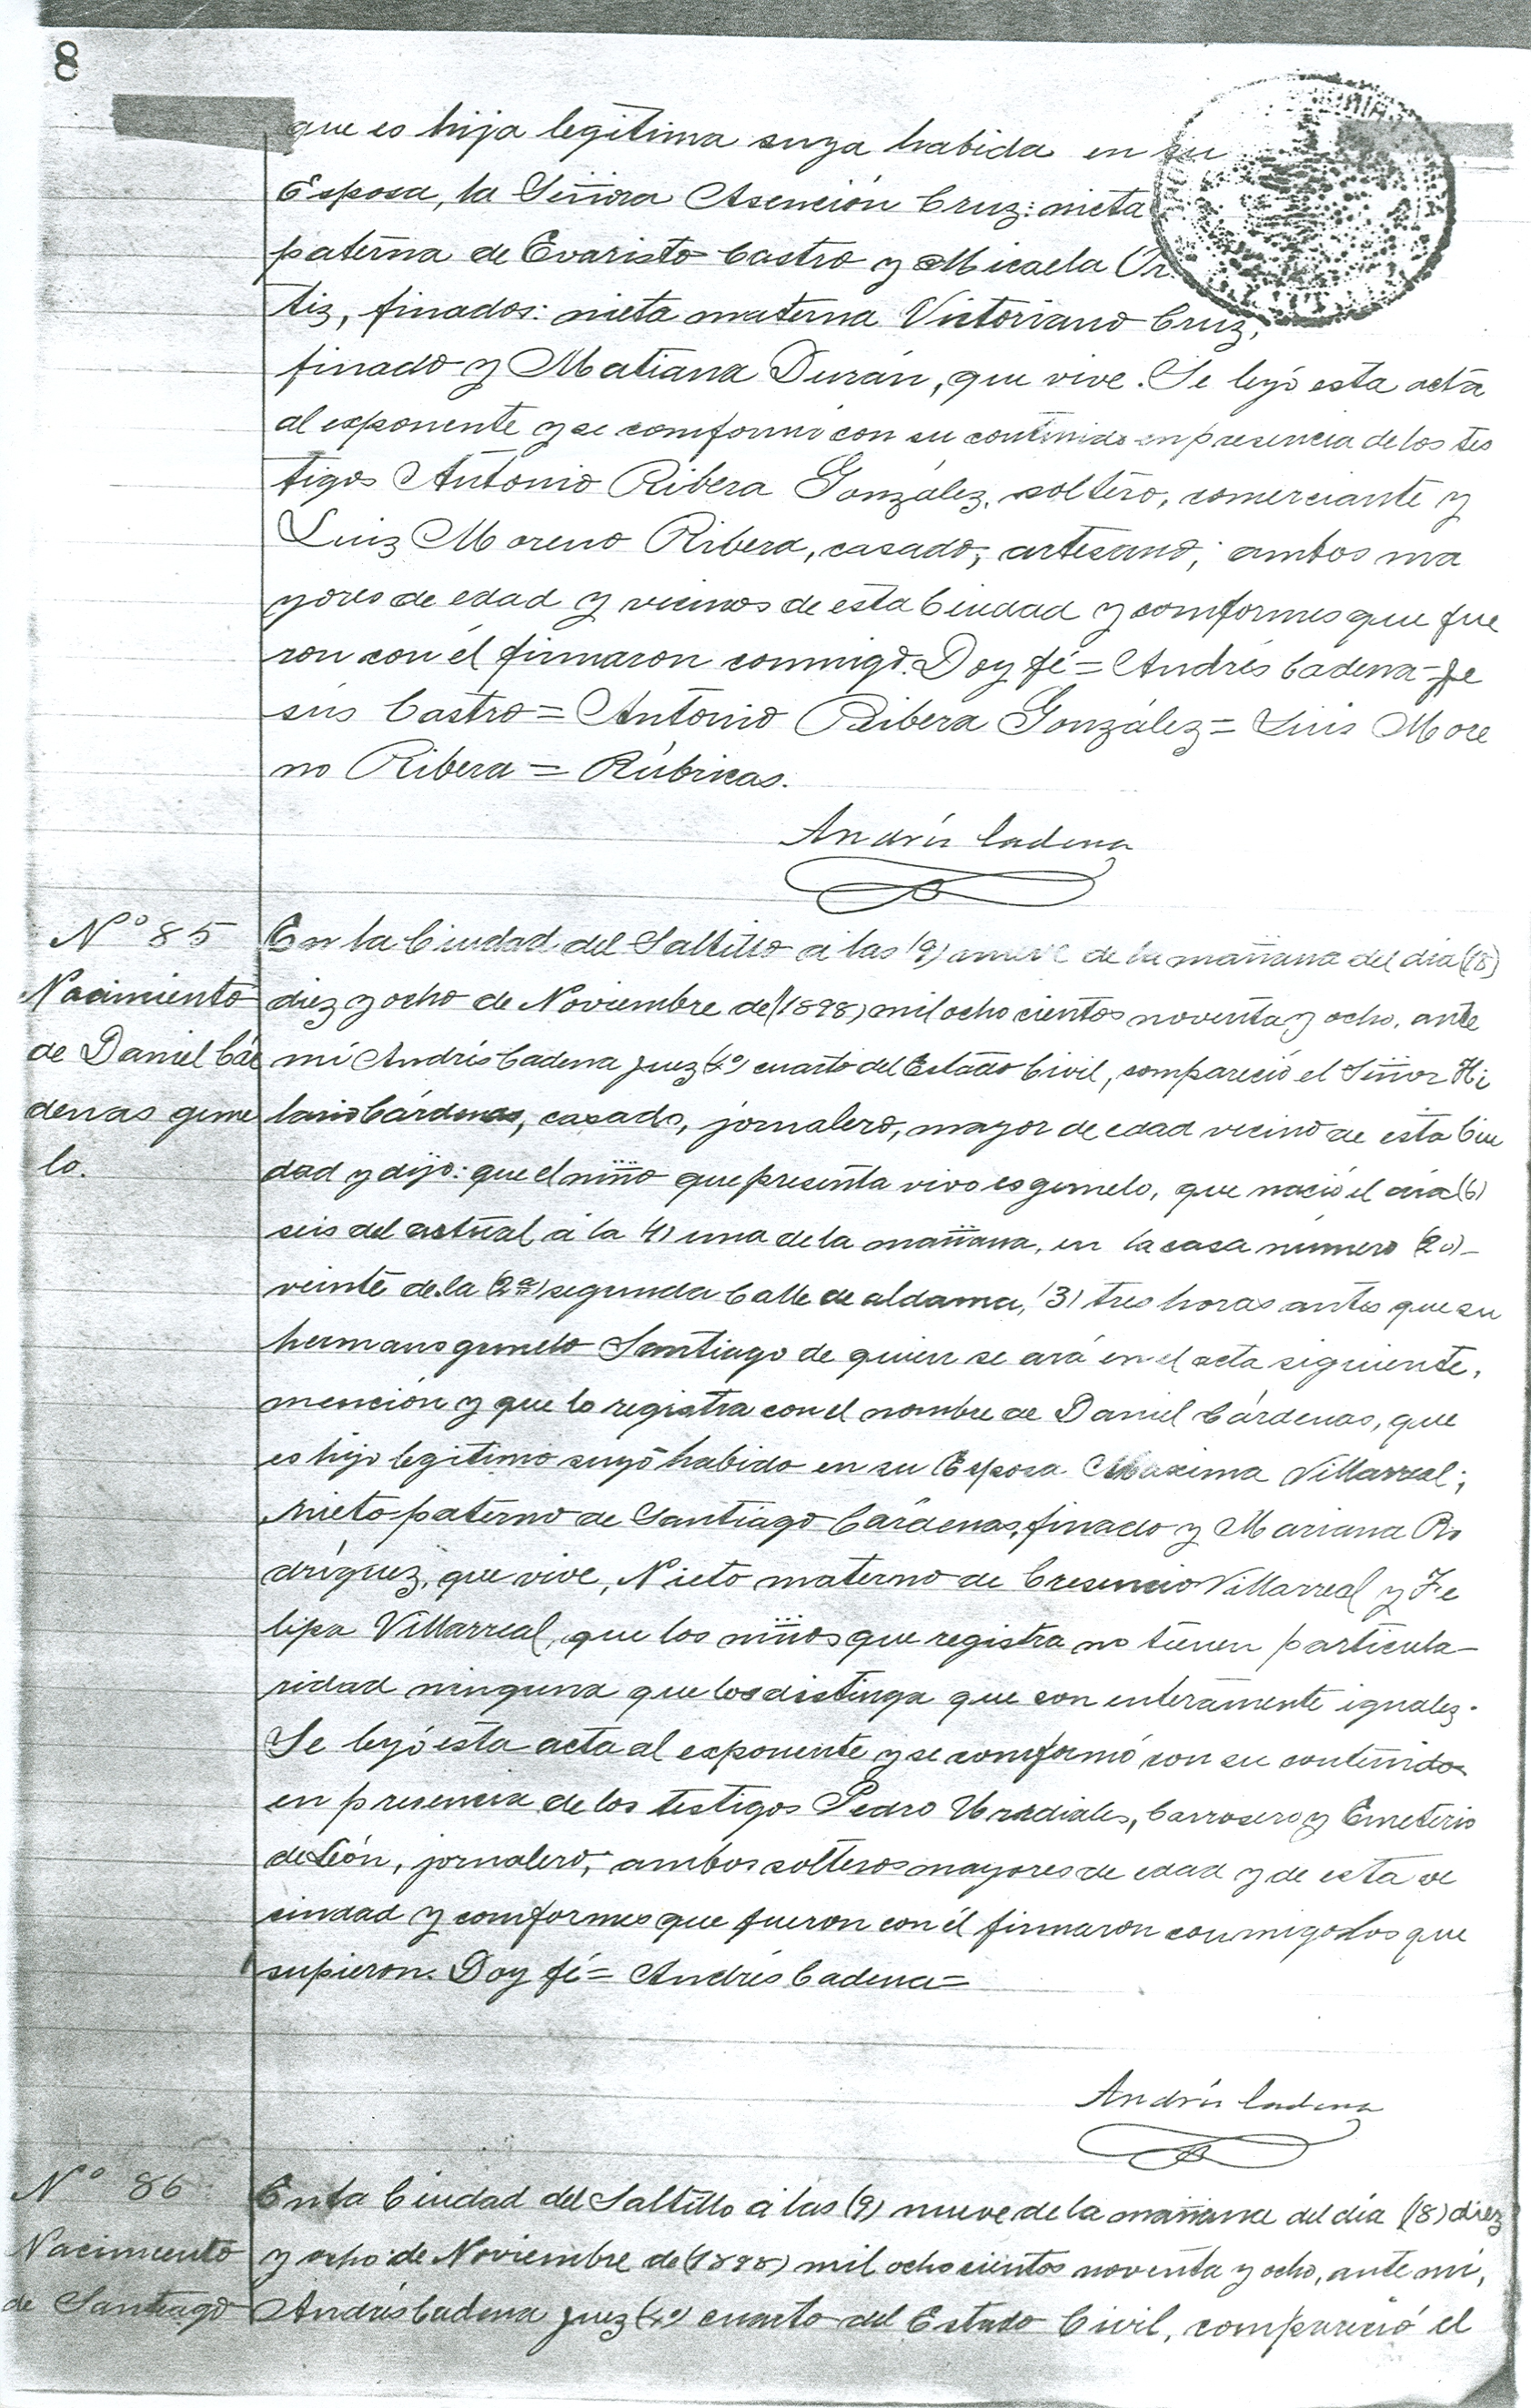 8
que es hija legitima suya habida en su
Esposa, la Señora Asención Cruz: nieta
paterna de Evaristo Castro y Micaela Or.
tiz, finados: nieta materna Victoriano Cruz,
finado y Matiana Durán, que vive. Se leyó esta acta
al exponente y se comformó con su contenido en presencia de los tes
tigos Antonio Ribera González, soltero, comerciante y
Luiz Moreno Ribera, casado, artesano; ambos ma
yores de edad y vicinos de esta Ciudad y comformes que fue
ron con él firmaron conmigo. Doy fé = Andrés Cadena = Je
sús Castro = Antonio Ribera González = Luis More
no Ribera = Rúbricas.
Andrés Cadena
N° 85
Nacimiento
de Daniel Cár
denas geme
lo.
En la Ciudad del Saltillo a las (9) nueve de la mañana del día (18)
diez y ocho de Noviembre de (1898) mil ocho cientos noventa y ocho, ante
mí Andrés Cadena juez (4°) cuarto del Estado Civil, compareció el Señor Hi
lario Cárdenas, casado, jornalero, mayor de edad vicino de esta Ciu
dad y dijo: que el niño que presenta vivo es gemelo, que nació el día (6)
seis del actual á la (1) una de la mañana, en la casa número (20)
veinte de la (2ª) segunda Calle de aldama, (3) tres horas antes que su
hermano gemelo Santiago de quien se ará en el acta siguiente,
mención y que lo registra con el nombre de Daniel Cárdenas, que
es hijo legitimo suyo habido en su Esposa Maxima Villarreal;
Nieto paterno de Santiago Cárdenas, finado y Mariana Ro
dríguez, que vive, Nieto materno de Cresencio Villarreal y Fe
lipa Villarreal, que los niños que registra no tienen particula-
ridad ninguna que los distinga que son enteramente iguales.
Se leyó esta acta al exponente y se comformó con su contenido
en presencia de los testigos Pedro Uradiales, Carrosero y Emeterio
de León, jornalero, ambos solteros mayores de edad y de esta ve
cindad y comformes que fueron con él firmaron conmigo los que
supieron. Doy fé = Andrés Cadena =
Andrés Cadena
N° 86
Nacimiento
de Santiago
En la Ciudad del Saltillo á las (9) nueve de la mañana del día (18) diez
y ocho de Noviembre de (1898) mil ocho cientos noventa y ocho, ante mí,
Andrés Cadena juez (4°) cuarto del Estado Civil, compareció el